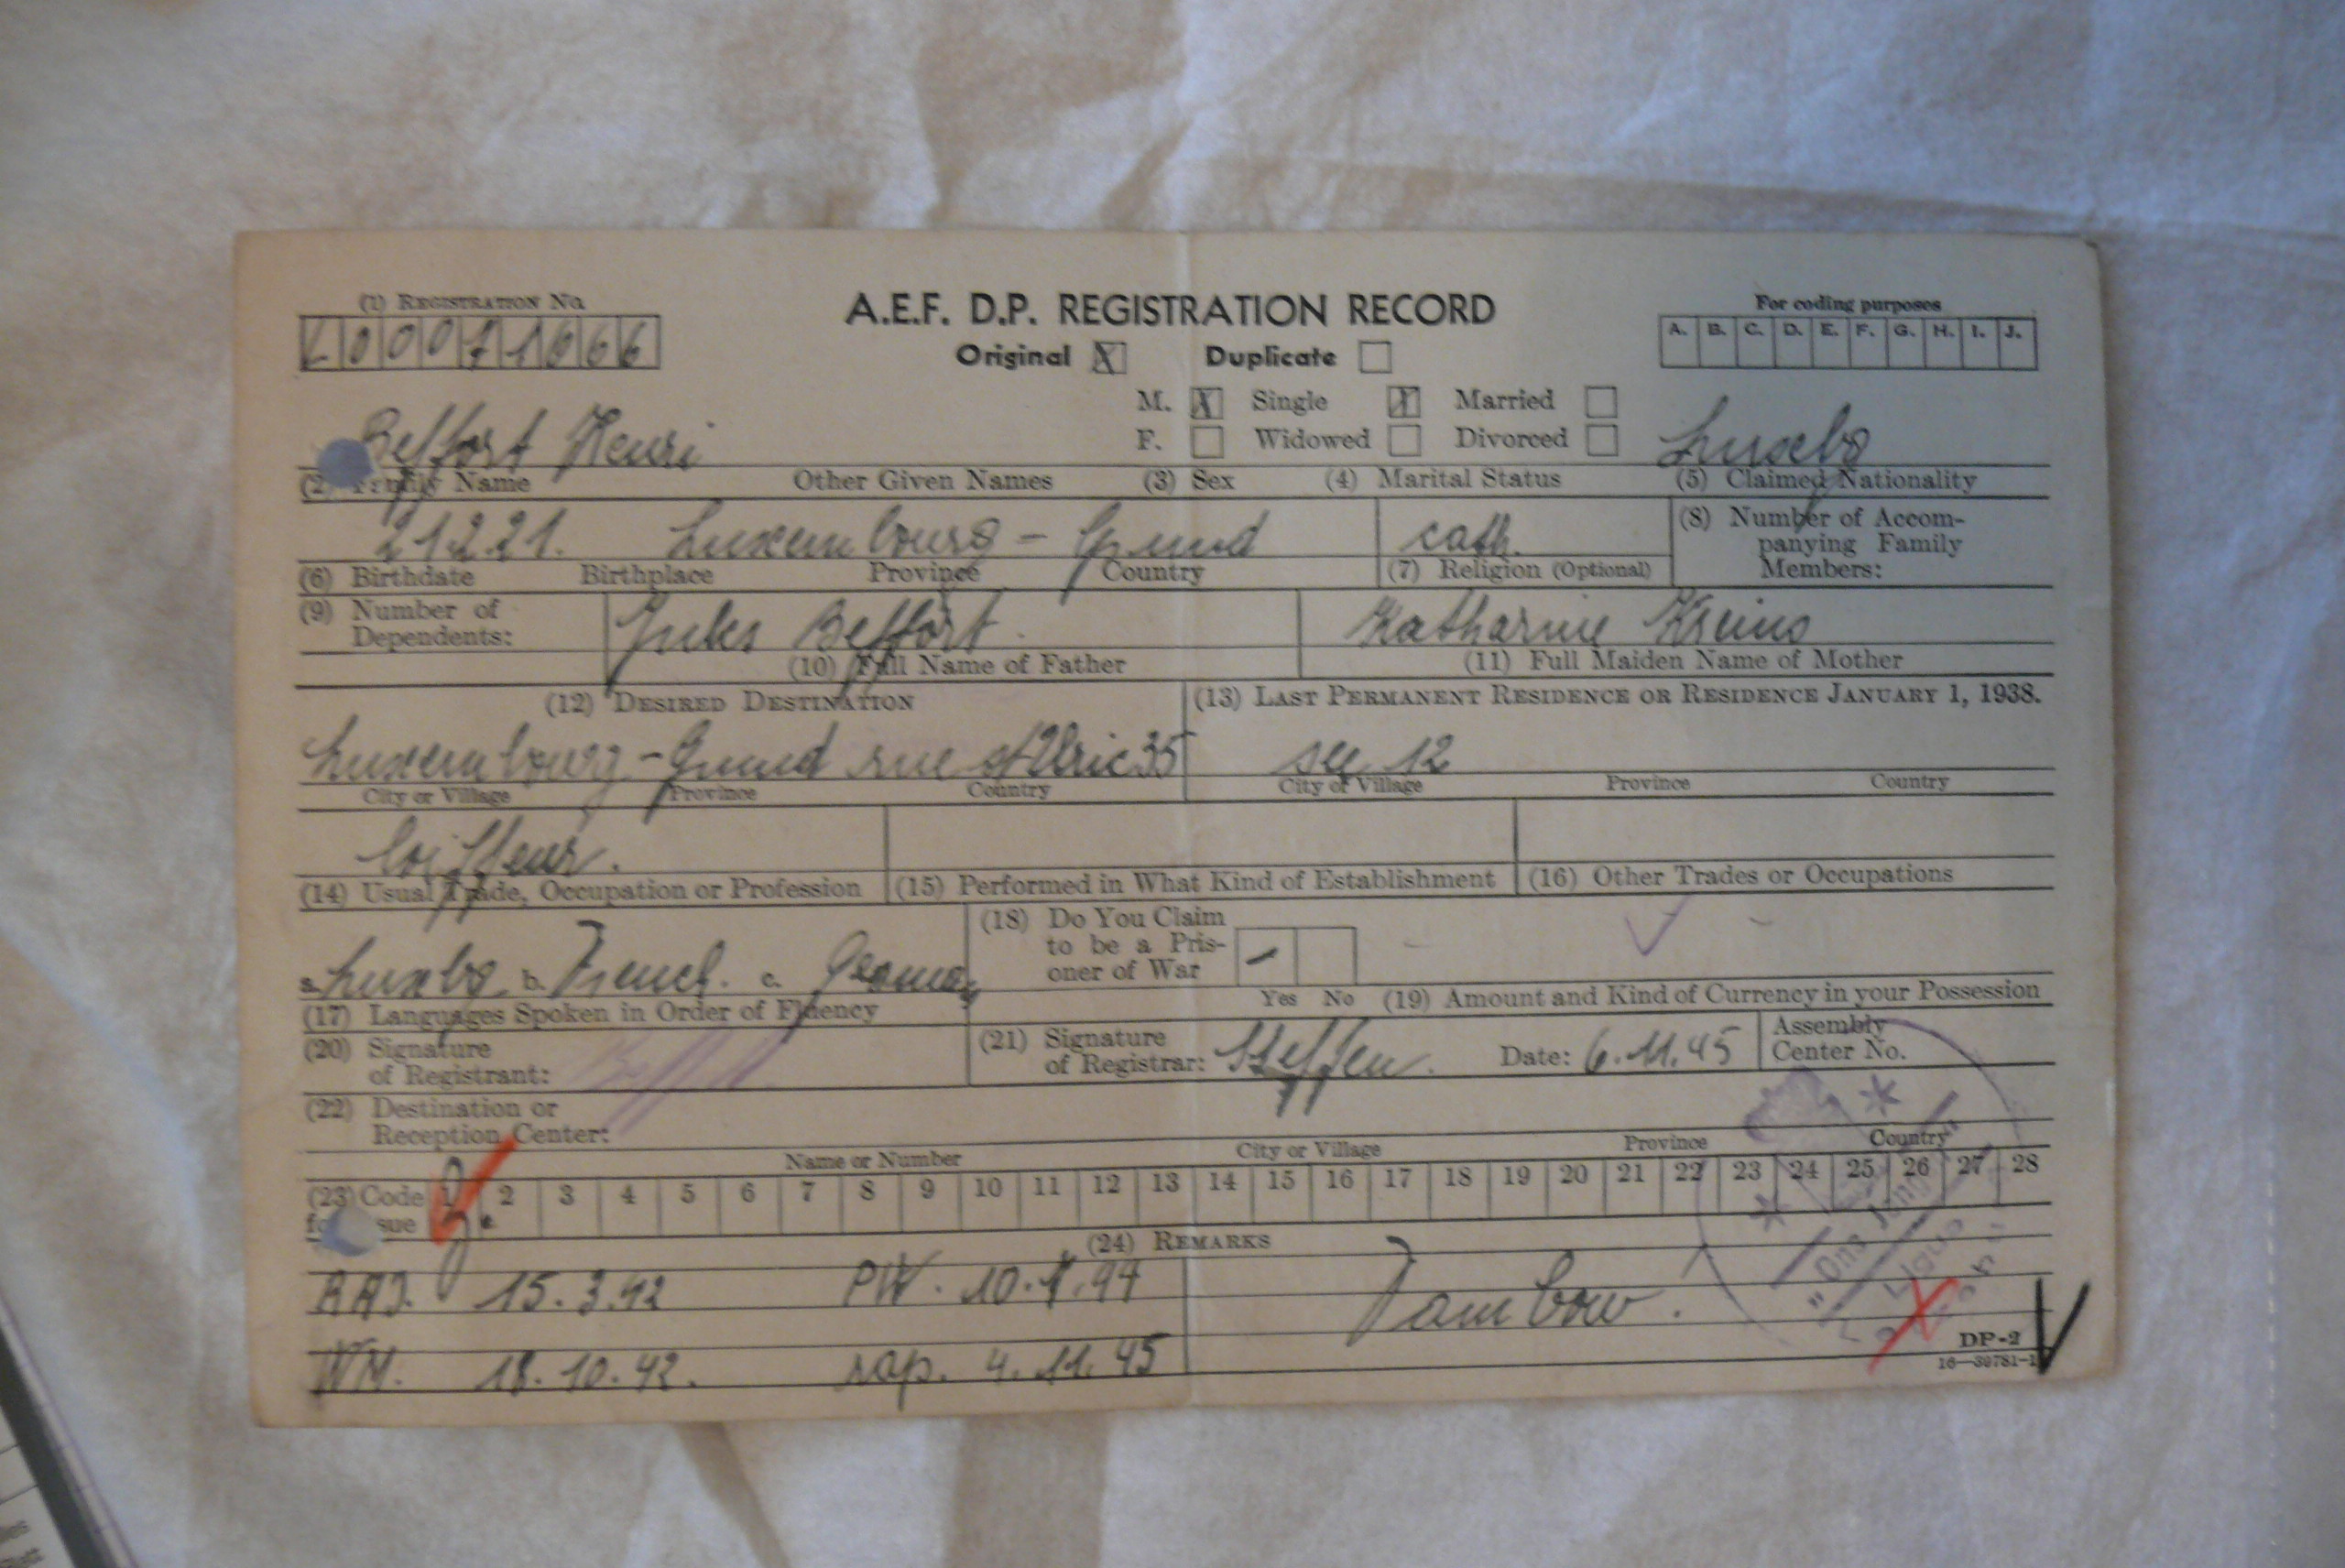 (1) REGISTRATION No.
L00071666
A.E.F. D.P. REGISTRATION RECORD
Original X Duplicate
For coding purposes
A. B. C. D. E. F. G. H. I. J.
M. X Single X Married
F. Widowed Divorced
Beffort Henri Luxebg
(2) Family Name Other Given Names (3) Sex (4) Marital Status (5) Claimed Nationality
21.2.21. Luxembourg - Grund cath.
(6) Birthdate Birthplace Province Country (7) Religion (Optional)
(8) Number of Accom-
panying Family
Members:
(9) Number of
Dependents:
Jules Beffort.
(10) Full Name of Father
Katharine Kreins
(11) Full Maiden Name of Mother
(12) DESIRED DESTINATION
Luxembourg - Grund rue st Ulric 35
City or Village Province Country
(13) LAST PERMANENT RESIDENCE OR RESIDENCE JANUARY 1, 1938.
see 12
City or Village Province Country
Coiffeur.
(14) Usual Trade, Occupation or Profession (15) Performed in What Kind of Establishment (16) Other Trades or Occupations
a. Luxebg b. French. c. German
(17) Languages Spoken in Order of Fluency
(18) Do You Claim
to be a Pris-
oner of War
-
Yes No
(19) Amount and Kind of Currency in your Possession
(20) Signature
of Registrant:
(21) Signature
of Registrar: Steffen. Date: 6.11.45
Assembly
Center No.
(22) Destination or
Reception Center:
Name or Number City or Village Province Country
(23) Code
for Issue
1 2 3 4 5 6 7 8 9 10 11 12 13 14 15 16 17 18 19 20 21 22 23 24 25 26 27 28
(24) REMARKS
RAD. 15.3.42 PW. 10.1.44 Tambow.
WM. 18.10.42. rap. 4.11.45
"Ons Jongen"
Ligue
DP-2
16-39781-1